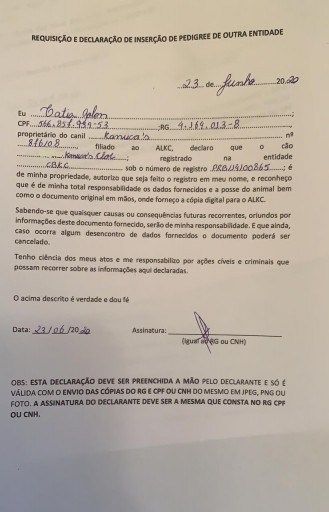 REQUISIÇÃO E DECLARAÇÃO DE INSERÇÃO DE PEDIGREE DE OUTRA ENTIDADE
23 de Junho 2020
Eu Catia
CPF 566.851.999-53 ;RG 4.169.013-8
proprietário do canil Kamuca's nº
876/08, filiado ao ALKC, declaro que o cão
registrado na entidade
CBKC sob o número de registro ; é
de minha propriedade, autorizo que seja feito o registro em meu nome, e reconheço
que é de minha total responsabilidade os dados fornecidos e a posse do animal bem
como o documento original em mãos, onde forneço a cópia digital para o ALKC.
Sabendo-se que quaisquer causas ou consequências futuras recorrentes, oriundos por
informações deste documento fornecido, serão de minha responsabilidade. E que ainda,
caso ocorra algum desencontro de dados fornecidos o documento poderá ser
cancelado.
Tenho ciência dos meus atos e me responsabilizo por ações cíveis e criminais que
possam recorrer sobre as informações aqui declaradas.
O acima descrito é verdade e dou fé
Data: 23/06/2020 Assinatura:
(Igual ao RG ou CNH)
OBS: ESTA DECLARAÇÃO DEVE SER PREENCHIDA A MÃO PELO DECLARANTE E SÓ É
VÁLIDA COM O ENVIO DAS CÓPIAS DO RG E CPF OU CNH DO MESMO EM JPEG, PNG OU
FOTO. A ASSINATURA DO DECLARANTE DEVE SER A MESMA QUE CONSTA NO RG CPF
OU CNH.